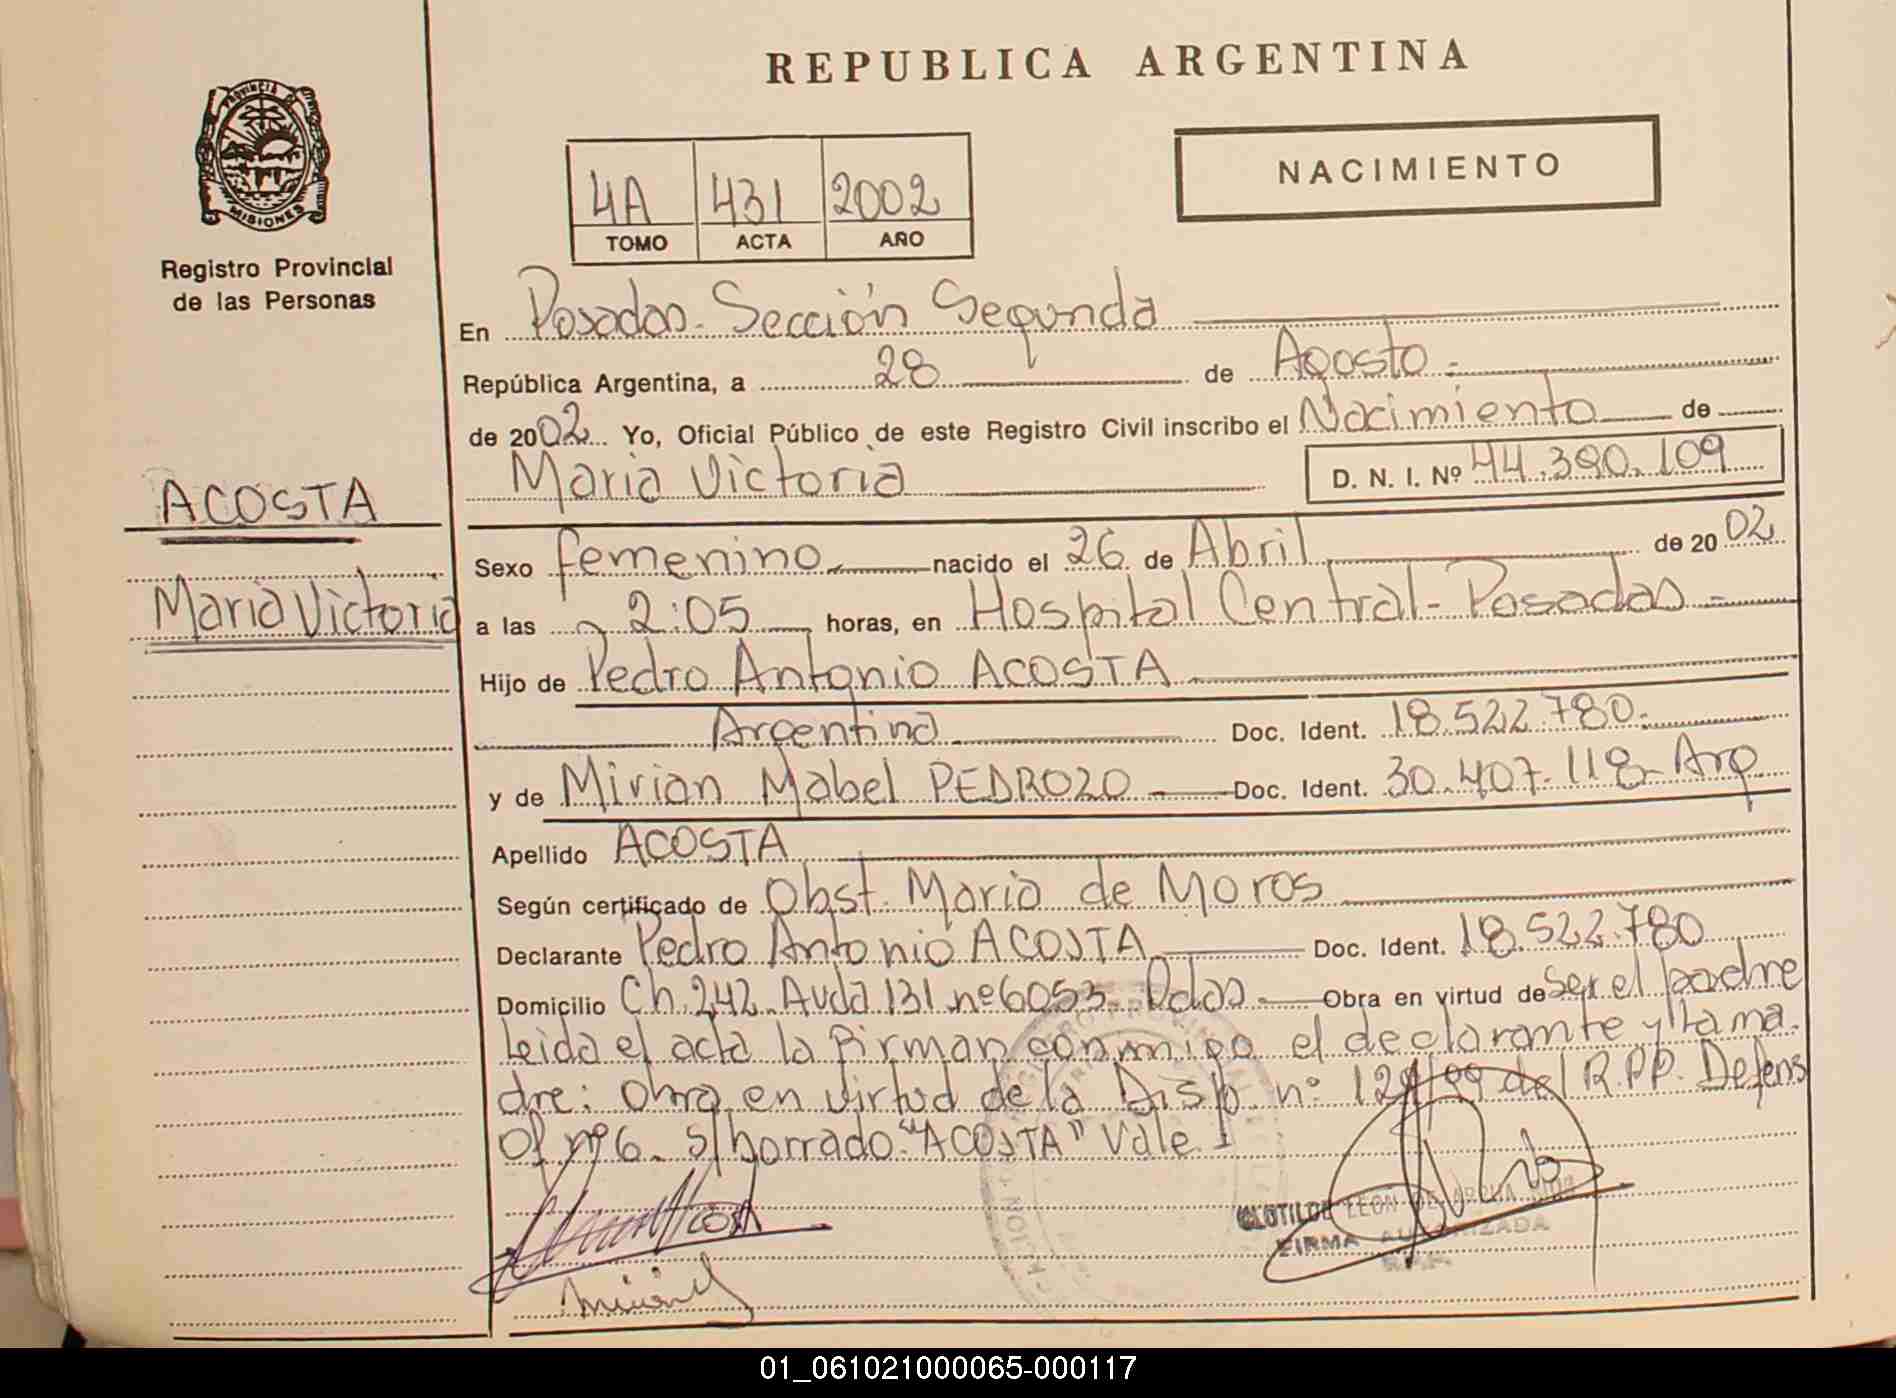 REPUBLICA ARGENTINA
PROVINCIA DE
MISIONES
Registro Provincial
de las Personas
4A 431 2002
TOMO ACTA AÑO
NACIMIENTO
En Posadas. Sección Segunda
República Argentina, a 28 de Agosto
de 2002 Yo, Oficial Público de este Registro Civil inscribo el Nacimiento de
Maria Victoria D. N. I. Nº 44.380.109
ACOSTA
Maria Victoria
Sexo femenino nacido el 26 de Abril de 2002
a las 2:05 horas, en Hospital Central - Posadas
Hijo de Pedro Antonio ACOSTA
Argentina Doc. Ident. 18.522.780
y de Mirian Mabel PEDROZO Doc. Ident. 30.407.118 - Arg
Apellido ACOSTA
Según certificado de Obst. Maria de Moros
Declarante Pedro Antonio ACOSTA Doc. Ident. 18.522.780
Domicilio Ch. 242. Avda 131 nº 6053 Pdas Obra en virtud de Ser el padre
Leida el acta la firman conmigo el declarante y la ma
dre: Obra en virtud de la Disp. nº 129/99 del R.P.P. Defens
Of nº 6. s/borrado "ACOSTA" Vale
CLOTILDE LEON DE
FIRMA AUTORIZADA
R.P.P.
01_061021000065-000117